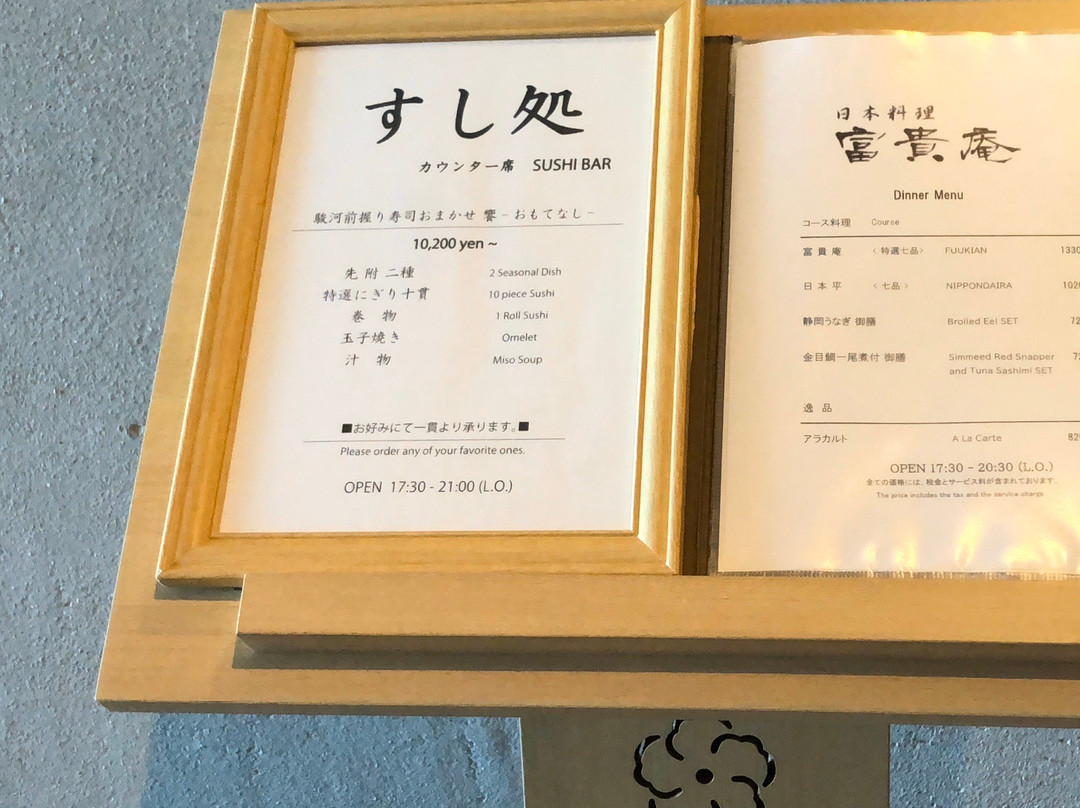 すし処
カウンター席 SUSHI BAR
駿河前握り寿司おまかせ 饗 - おもてなし -
10,200 yen ~
先附二種 2 Seasonal Dish
特選にぎり十貫 10 piece Sushi
巻物 1 Roll Sushi
玉子焼き Omelet
汁物 Miso Soup
■お好みにて一貫より承ります。■
Please order any of your favorite ones.
OPEN 17:30 - 21:00 (L.O.)
日本料理
富貴庵
Dinner Menu
コース料理 Course
富貴庵 〈特選七品〉 FUUKIAN 1330
日本平 〈七品〉 NIPPONDAIRA
静岡うなぎ 御膳 Broiled Eel SET
金目鯛一尾煮付 御膳 Simmeed Red Snapper
and Tuna Sashimi SET
逸品
アラカルト A La Carte
OPEN 17:30 - 20:30 (L.O.)
全ての価格には、税金とサービス料が含まれております。
The price includes the tax and the service charge